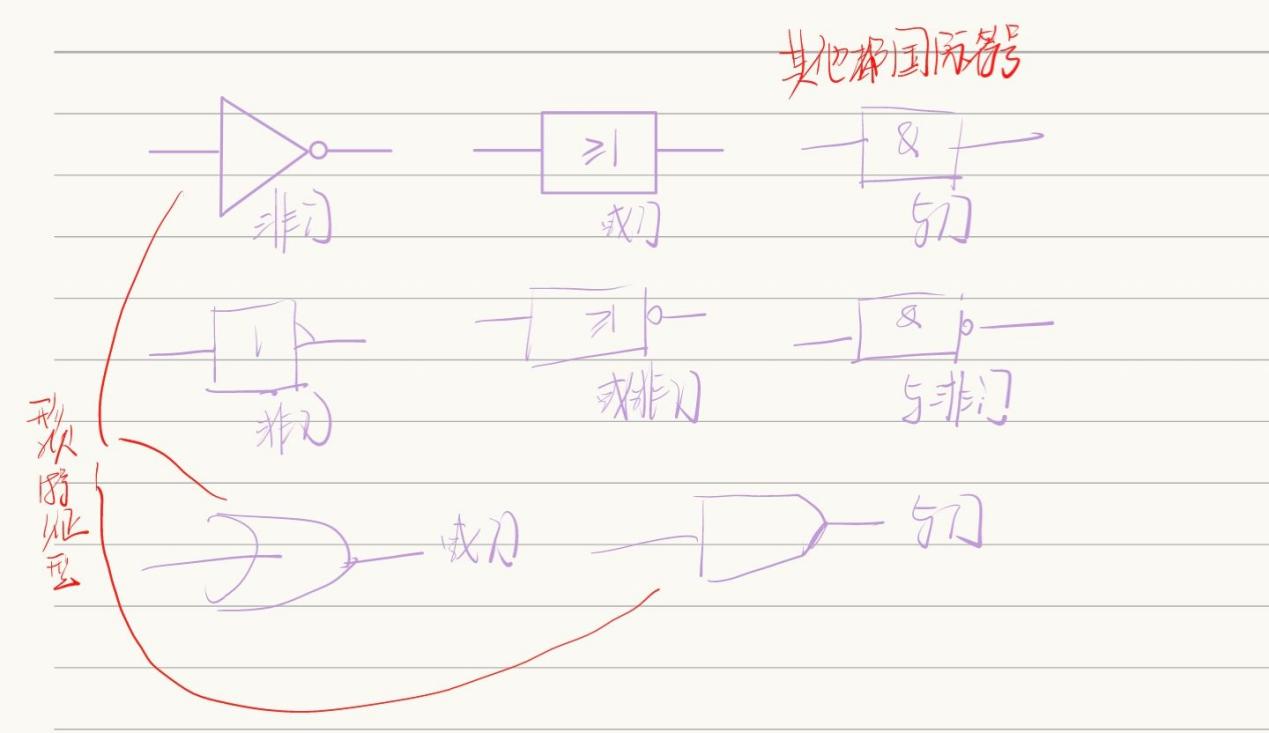 其他都国际符号
≥1
&
非门
或门
与门
1
≥1
&
非门
或非门
与非门
形状特征型
或门
与门